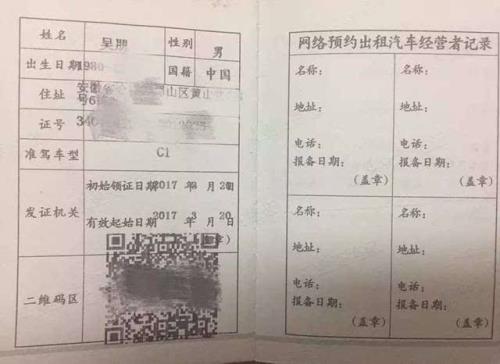 姓名
性别 男
出生日期 1980
国籍 中国
住址 安徽
山区黄山
号6
证号 340
准驾车型 C1
发证机关
初始领证日期 2017 年 3 月 20 日
有效起始日期 2017 年 3 月 20
章)
二维码区
网络预约出租汽车经营者记录
名称: 名称:
地址: 地址:
电话: 电话:
报备日期: 报备日期:
(盖章) (盖章)
名称: 名称:
地址: 地址:
电话: 电话:
报备日期: 报备日期:
(盖章) (盖章)